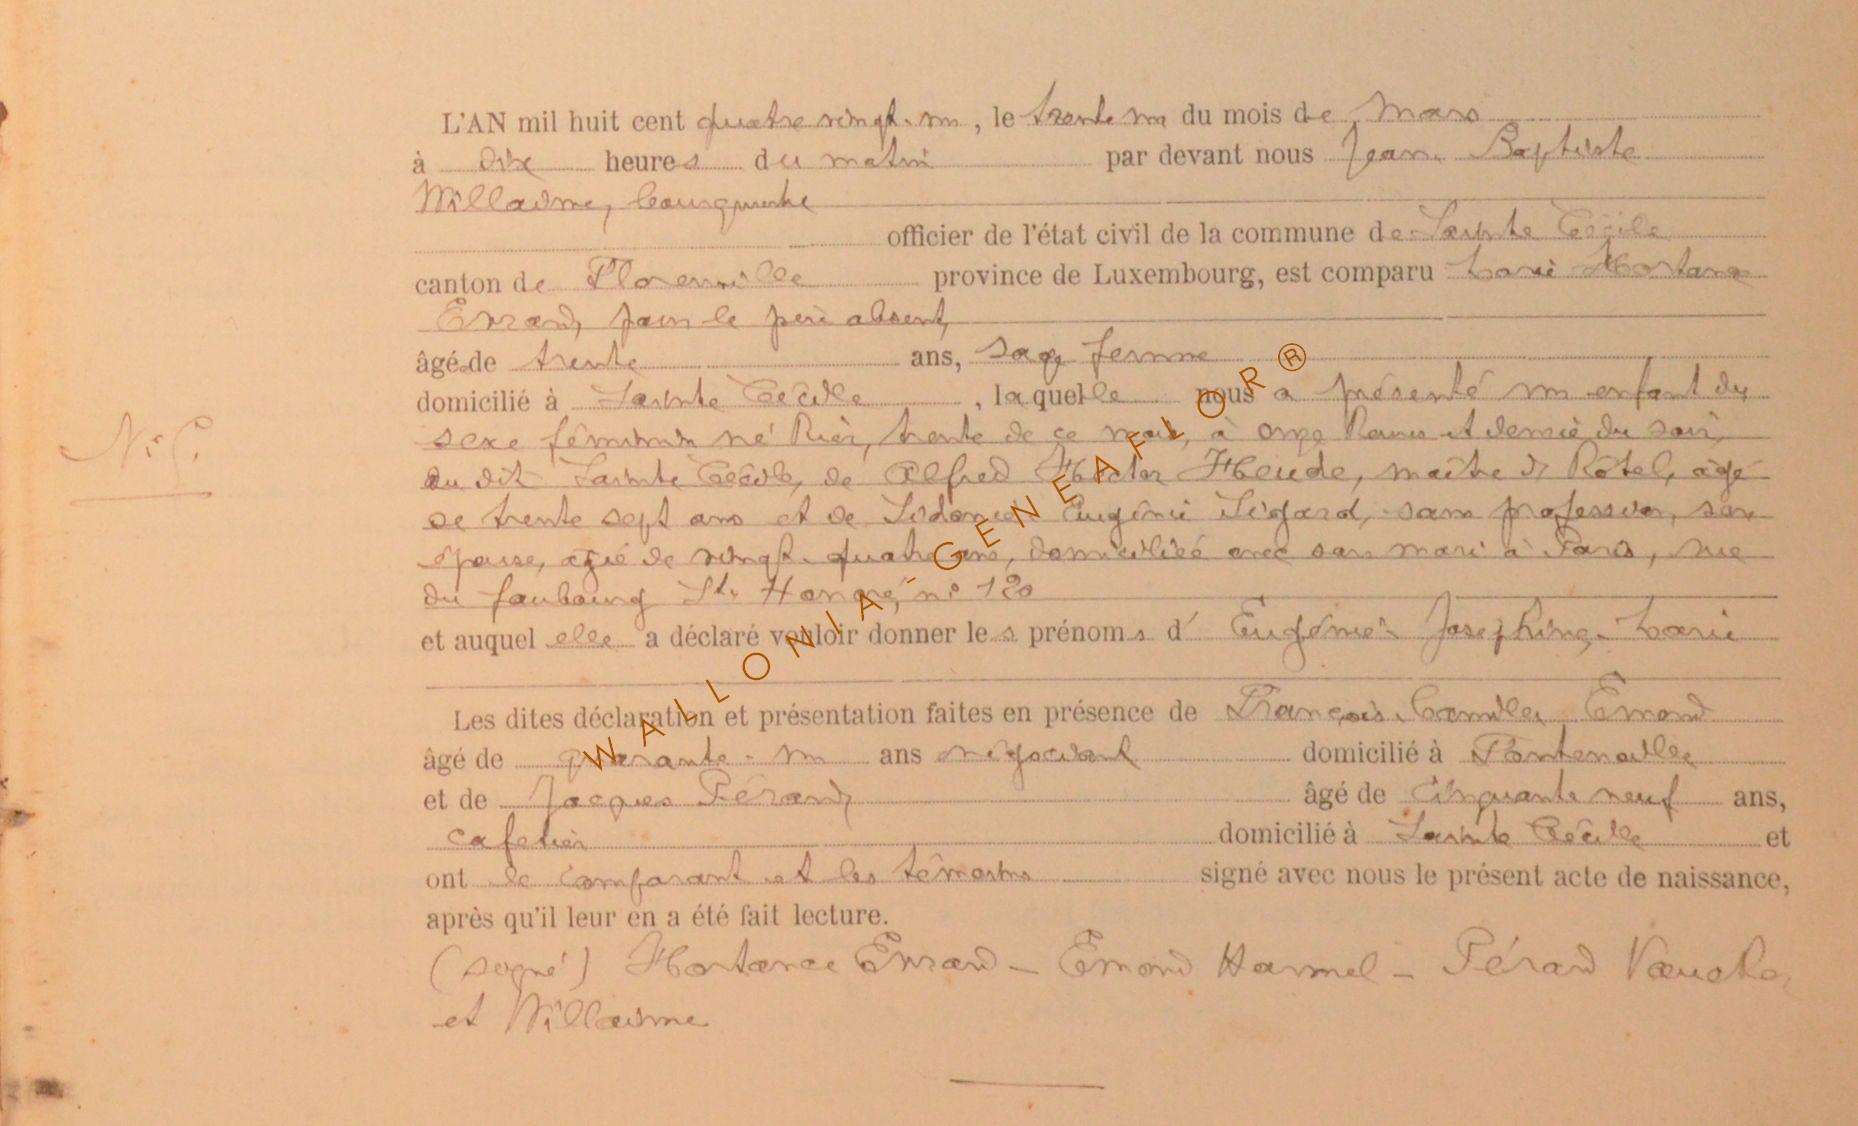 L'AN mil huit cent quatre vingt-un, le trente un du mois de Mars
à dix heures du matin par devant nous Jean Baptiste
Willaime, Bourgmestre
officier de l'état civil de la commune de Sainte Cécile
canton de Florenville province de Luxembourg, est comparu Marie Hortance
Evrard, pour le père absent,
âgé de trente ans, sage femme
domicilié à Sainte Cécile, laquelle nous a présenté un enfant du
sexe féminin né hier, trente de ce mois, à onze heures et demie du soir,
au dit Sainte Cécile, de Alfred Hector Heude, maître d'hôtel, âgé
de trente sept ans et de Sidonie Eugénie sans profession, son
épouse, âgé de vingt-quatre ans, domiciliée avec son mari à Paris, rue
du faubourg St. Honoré, n° 120
et auquel elle a déclaré vouloir donner les prénoms d' Eugénie-Joséphine-Marie
Les dites déclaration et présentation faites en présence de François Camille Emond
âgé de quarante-un ans négociant domicilié à Fontenoille
N° 5.
et de Jacques Pérard, âgé de cinquante neuf ans,
cafetier domicilié à Sainte Cécile et
ont le comparant et les témoins signé avec nous le présent acte de naissance,
après qu'il leur en a été fait lecture.
(signé) Hortance Evrard - Emond Harmel - Pérard
et Willaime
WALLONIA-GENEAFLOR®